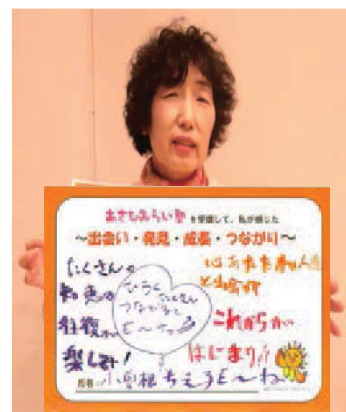 あさひみらい塾を受講して、私が感じた
～出会い・発見・成長・つながり～
たくさんの
知恵の
往復が
楽しみ!
ひろく
たくさん
つながるで
E～ネっ
心あたたまる
と出会
これからが
はじまり!!
氏名: 小曽根ちえ子E～ね